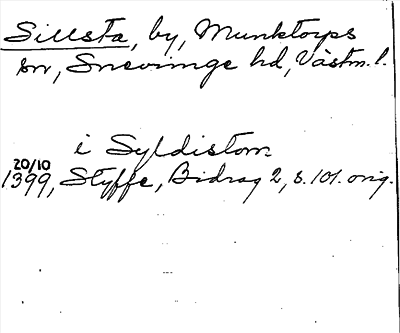 Sillsta, by, Munktorps
sn, Snevinge hd, Västm. l.
i Syldistom
20/10
1399, Styffe, Bidrag 2, s. 101. orig.